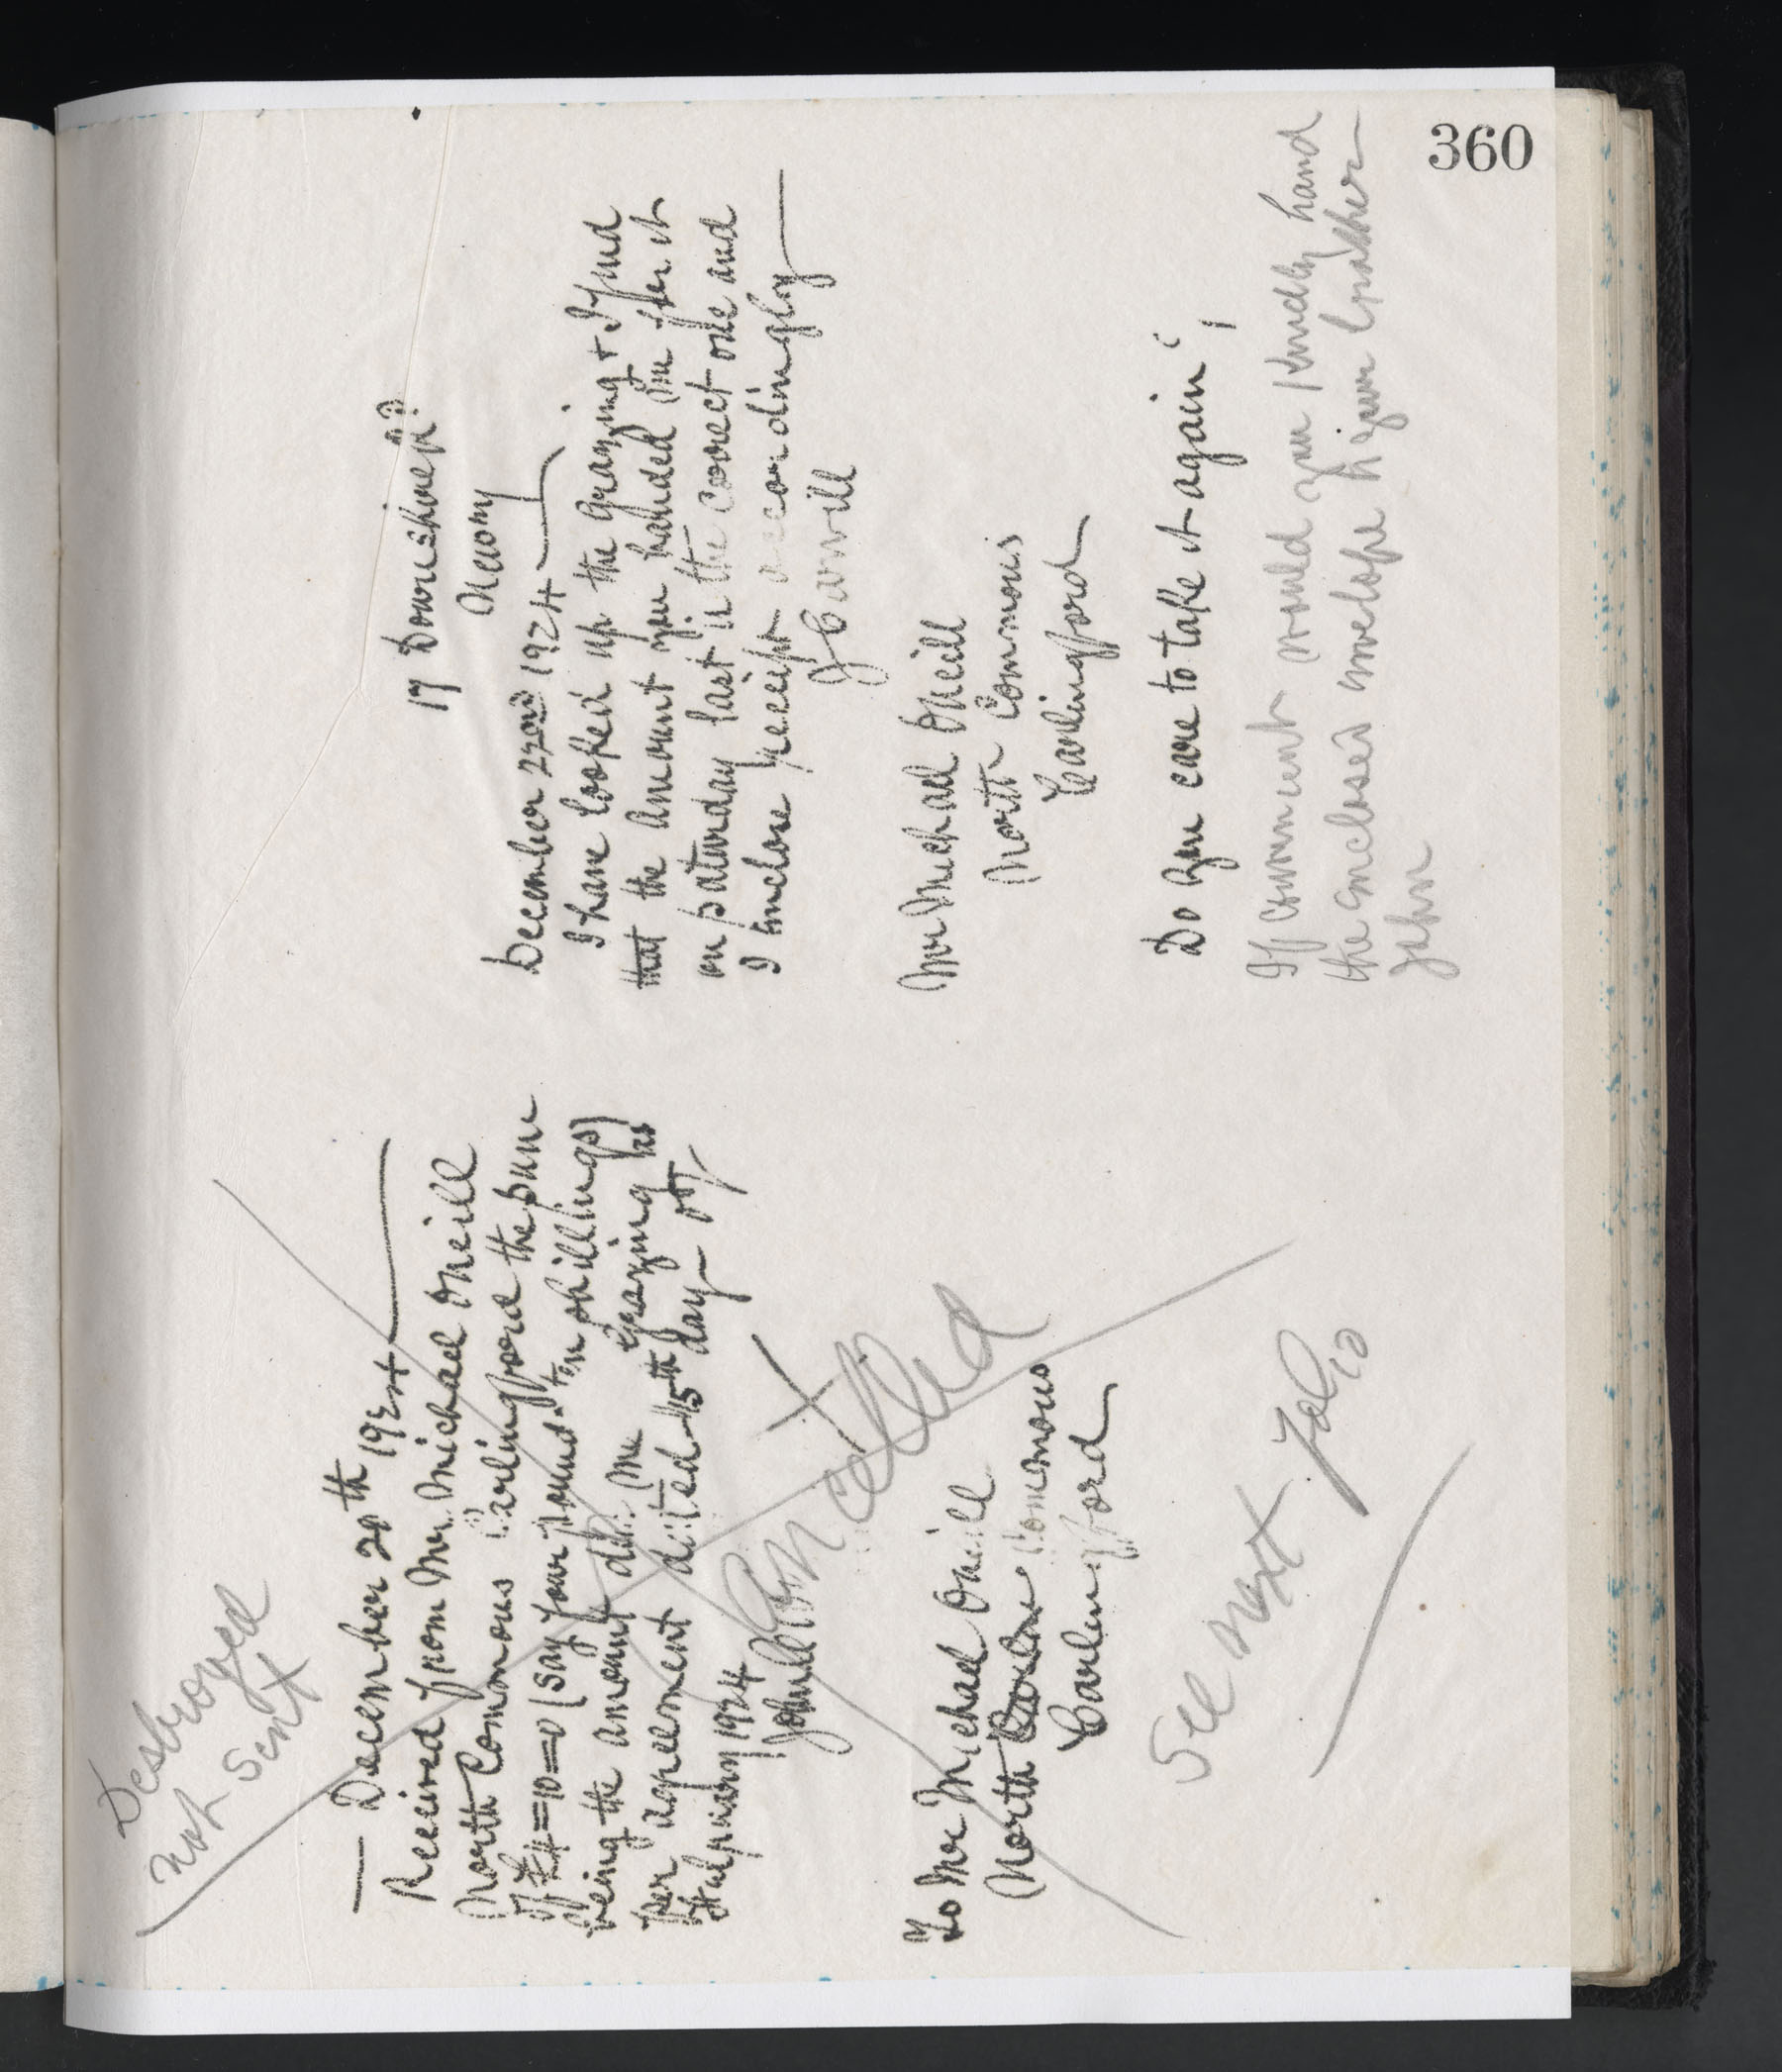 360
Destroyed
not sent
December 20th 1924
Received from Mr Michael ONeill
North Commons Carlingford the sum
of £4=10=0 (say four pounds ten shillings)
being the amount due me grazing as
per agreement dated 15th day of
February 1924
John
Cancelled
To Mr Michael ONeill
North Commons
Carlingford
See next folio
17 Downshire Rd
Newry
December 22nd 1924
I have looked up the grazing + I find
that the amount you handed me for it
on saturday last is the correct one and
I enclose receipt accordingly
J Carvill
Mr Michael ONeill
North Commons
Carlingford
Do you care to take it again?
If convenient would you kindly hand
the enclosed envelope to your brother
John